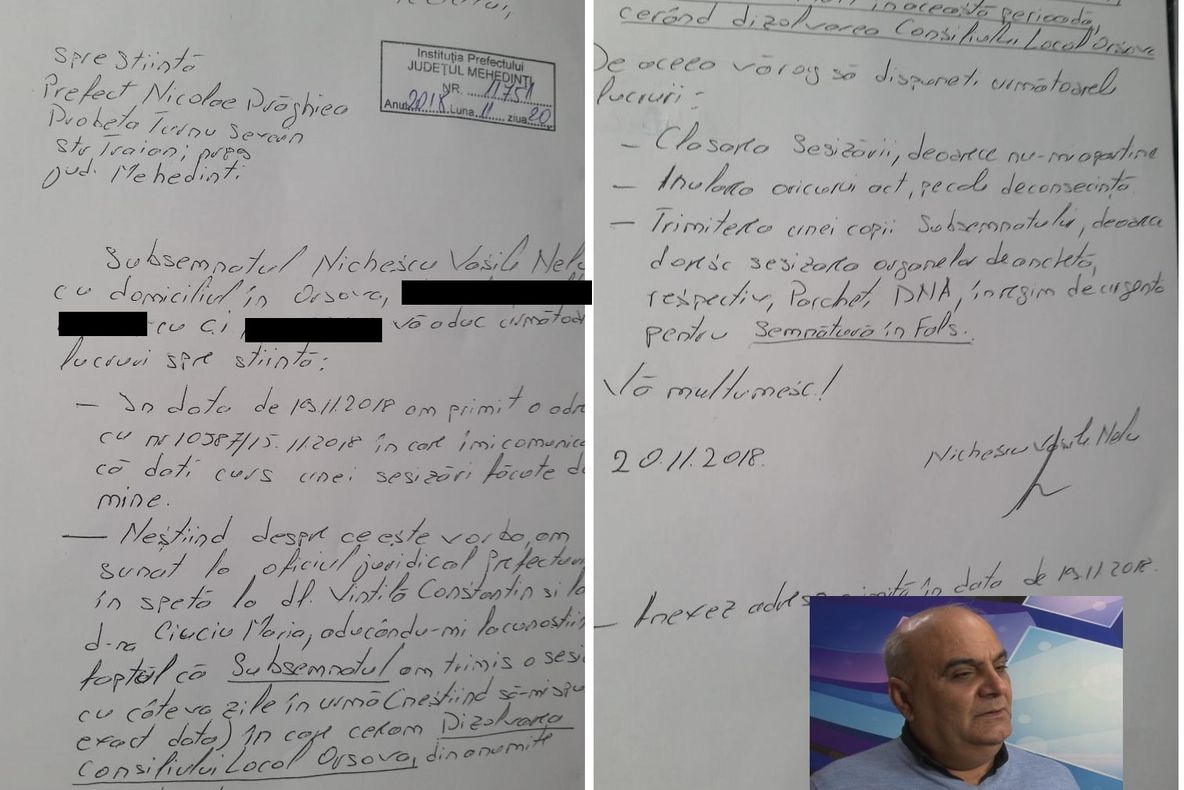 Spre Stiintă
Prefect Nicolae Drăghiea
Drobeta Turnu Severin
Str Traian,
jud. Mehedinti
Instituţia Prefectului
JUDEŢUL MEHEDINŢI
NR. 11751
Anul 2018 Luna 11 ziua 20
Subsemnatul Nichescu Vasile Nelu
cu domiciliul în Orsova,
cu ci vă aduc următoar
lucruri spre stiintă:
— In data de 19.11.2018 am primit o adre
cu nr 10587/15.11.2018 în care îmi comunica
că dati curs unei sesizări făcute de
mine.
— Neștiind despre ce este vorba, am
sunat la oficiul juridic al Prefecturi
în spetă la dl. Vintilă Constantin si la
d-na Ciuciu Maria, aducându-mi la cunostiin
faptul că Subsemnatul am trimis o sesi
cu câteva zile în urmă (nestiind să-mi spu
exact data) în care ceream Dizolvarea
Consiliului Local Orsova, din anumite
în această perioadă,
cerând dizolvarea Consiliului Local Orsova
De aceea vă rog să dispuneti următoarele
lucruri:
— Clasarea Sesizării, deoarece nu-mi apartine
— Anularea oricărui act, pe cale de consecintă
— Trimiterea unei copii Subsemnatului, deoarece
doresc sesizarea organelor de anchetă,
respectiv, Parchet, DNA, în regim de urgentă
pentru Semnătură în Fals.
Vă multumesc!
20.11.2018.
Nichescu Vasile Nelu
— Anexez adresa primită în data de 19.11.2018.